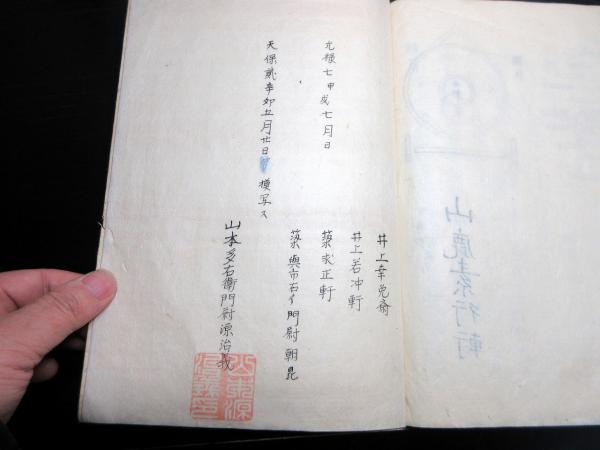 山鹿素行軒
元禄七甲戌七月日
井上幸免斎
井上若冲軒
求正軒
與市右イ門尉朝昆
天保貳辛卯五月廿日 模写ス
山本多右衛門尉源治義